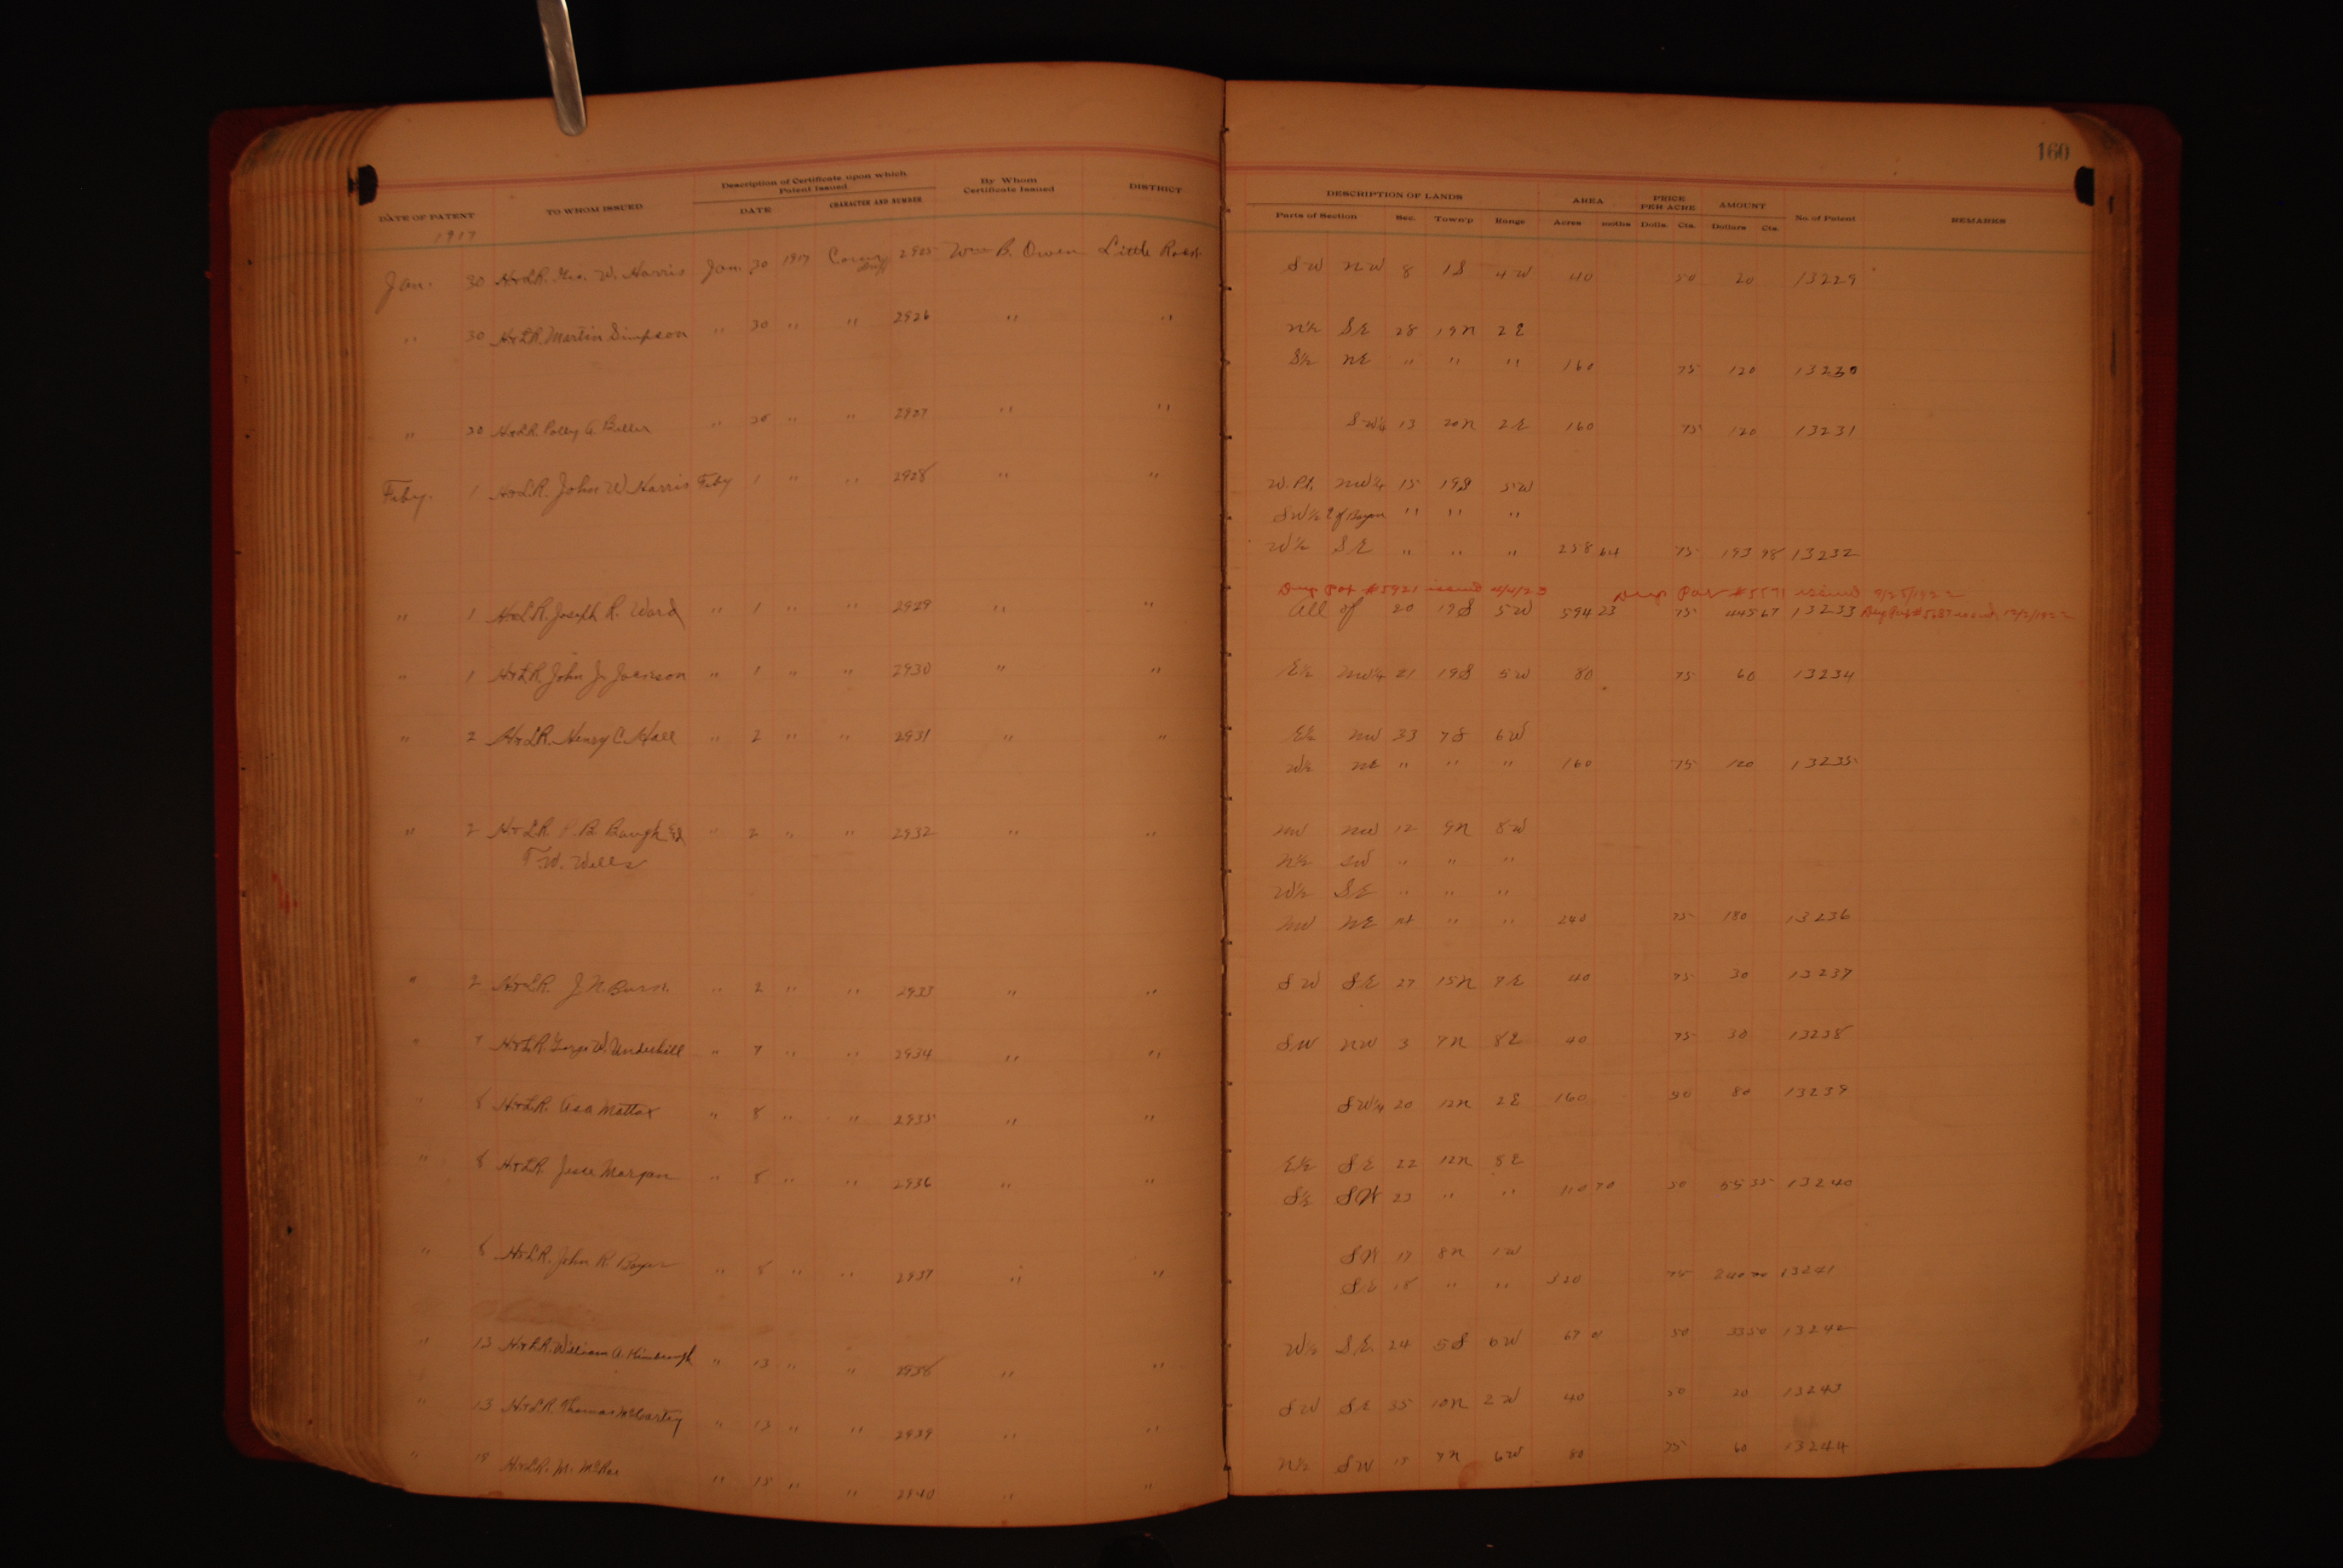 160
DATE OF PATENT TO WHOM ISSUED Description of Certificate upon which Patent Issued By Whom Certificate Issued DISTRICT DESCRIPTION OF LANDS AREA PRICE PER ACRE AMOUNT No of Patent REMARKS
DATE CHARACTER AND NUMBER Parts of Section Sec. Town'p Range Acres Dolls. Cts. Dollars Cts.
1917
Jan. 30 H&LR. Geo. W. Harris Jan. 30 1917 2925 Wm B. Owen Little Rock SW NW 8 1S 4W 40 50 20 13229
" 30 H&LR. Martin Simpson " 30 " " 2926 " " N½ SE 28 19N 2E
S½ NE " " " 160 75 120 13230
" 30 H&LR. Polly A " 30 " " 2927 " " SW¼ 13 20N 2E 160 75 120 13231
Feby. 1 H&LR. John W Harris Feby 1 " " 2928 " " W. Pt. NW¼ 15 19S 5W
SW¼ E of Bayou " " "
W½ SE " " " 258 64 75 193 98 13232
Dup Pat #5921 issued Dup Pat issued
" 1 H&LR. Joseph R. Ward " 1 " " 2929 " " All of 20 19S 5W 594 23 75 445 67 13233
" 1 H&LR. John J. " 1 " " 2930 " " E½ NW¼ 21 19S 5W 80 75 60 13234
" 2 H&LR. Henry C. Hall " 2 " " 2931 " " E½ NW 33 7S 6W
W½ NE " " " 160 75 120 13235
" 2 H&LR. B. Baugh & " 2 " " 2932 " " NW NW 12 9N 8W
T.W. Wells N½ SW " " "
W½ SE " " "
NW NE " " 240 75 180 13236
" 2 H&LR. J.N. " 2 " " 2933 " " SW SE 27 15N 7E 40 75 30 13237
" 7 H&LR. George W. Underhill " 7 " " 2934 " " SW NW 3 7N 8E 40 75 30 13238
" 8 H&LR. Asa Mattox " 8 " " 2935 " " SW¼ 20 12N 2E 160 50 80 13239
" 8 H&LR. Jesse Morgan " 8 " " 2936 " " E½ SE 22 12N 8E
S½ SW 23 " " 110 70 50 55 35 13240
" 8 H&LR. John R. " 8 " " 2937 " " SW 17 8N 1W
S½ 18 " " 320 75 240 00 13241
" 13 H&LR. William A. Kimbrough " 13 " " 2938 " " W½ SE 24 5S 6W 67 01 50 33 50 13242
" 13 H&LR. Thomas McCarty " 13 " " 2939 " " SW SE 35 10N 2W 40 50 20 13243
" 15 H&LR. M. McRae " 15 " " 2940 " " N½ SW 7N 6W 80 75 60 13244